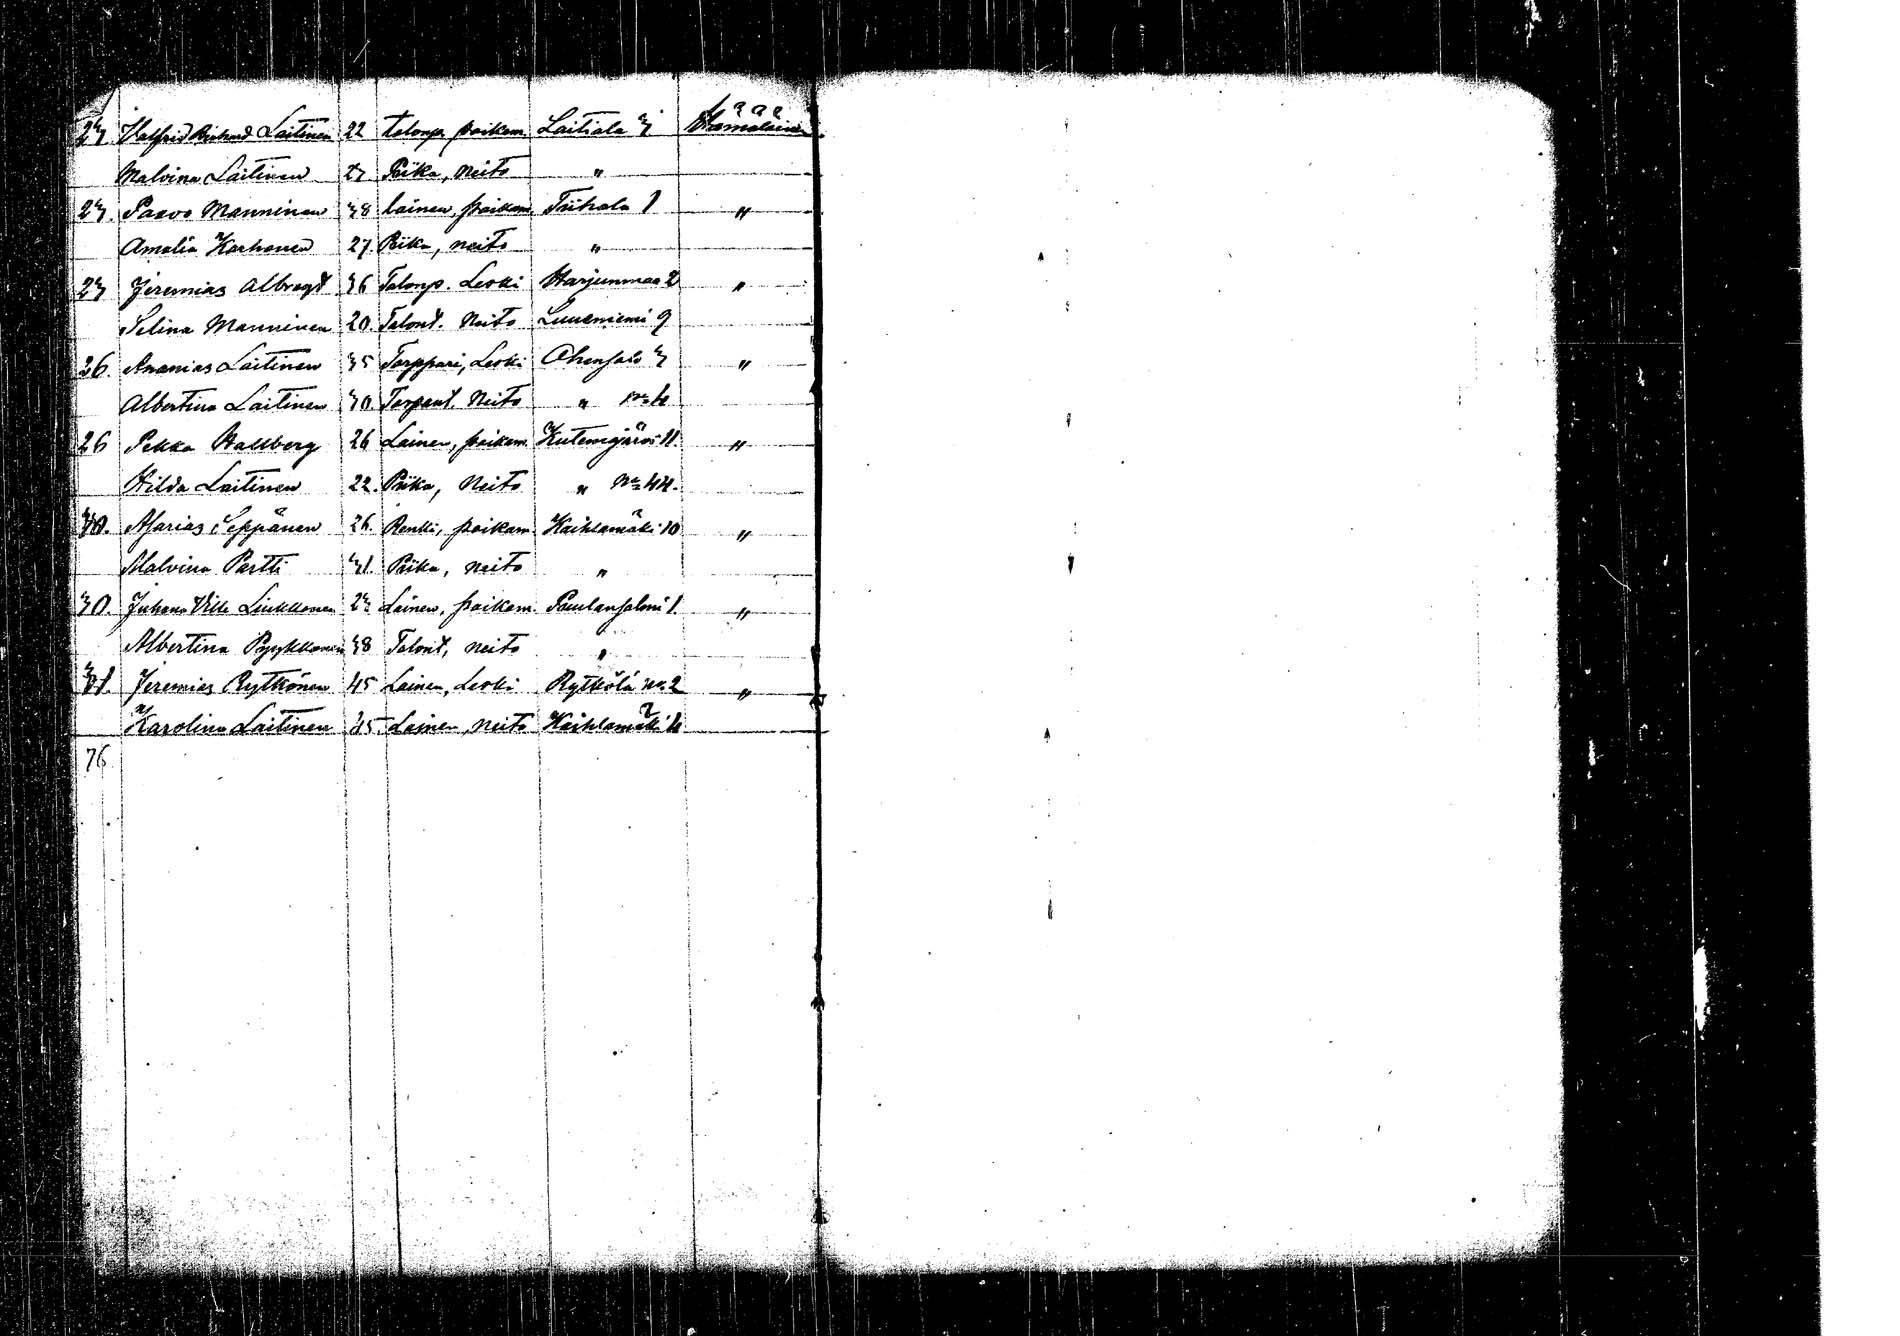 23. Valfrid Richard Laitinen 22 talonp. poikam. Laitiala 3 Hämäläinen
Malvina Laitinen 27 Piika, Neito "
23. Paavo Manninen 38 Loinen, poikam. Tiihala 1 "
Amalia Korhonen 27. Piika, neito "
23 Jeremias Albregt 36 Talonp. Leski Harjunmaa 2 "
Selina Manninen 20. Talont. Neito Luueniemi 9
26. Ananias Laitinen 35 Torppari, Leski Ahensalo 3 "
Albertina Laitinen 30. Torpant. Neito " No 4
26 Pekka Hallberg 26 Loinen, poikam. Kutemajärvi 11. "
Hilda Laitinen 22. Piika, Neito " No 44.
30. Asarias Seppänen 26. Renki, poikam. Kaihlamäki 10 "
Malvina Partti 31. Piika, neito "
30. Juhana Ville Liukkonen 23 Loinen, poikam. Paulansalmi 1. "
Albertina Pyykkonen 38 Talont, neito "
31. Jeremias Rytkönen 45 Loinen, Leski Rytkölä No. 2 "
Karolina Laitinen 45. Loinen, neito Kaihlamäki 4
76